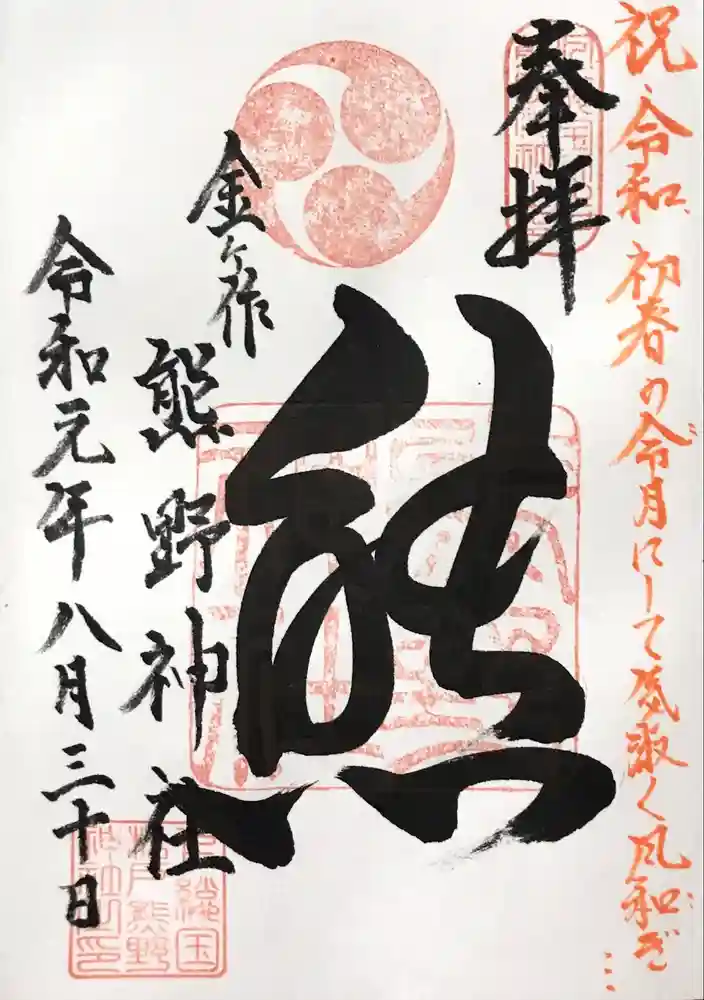 祝、令和 初春の令月にして気淑く風和ぎ…
奉拝
熊
金ヶ作
熊野神社
令和元年八月三十日